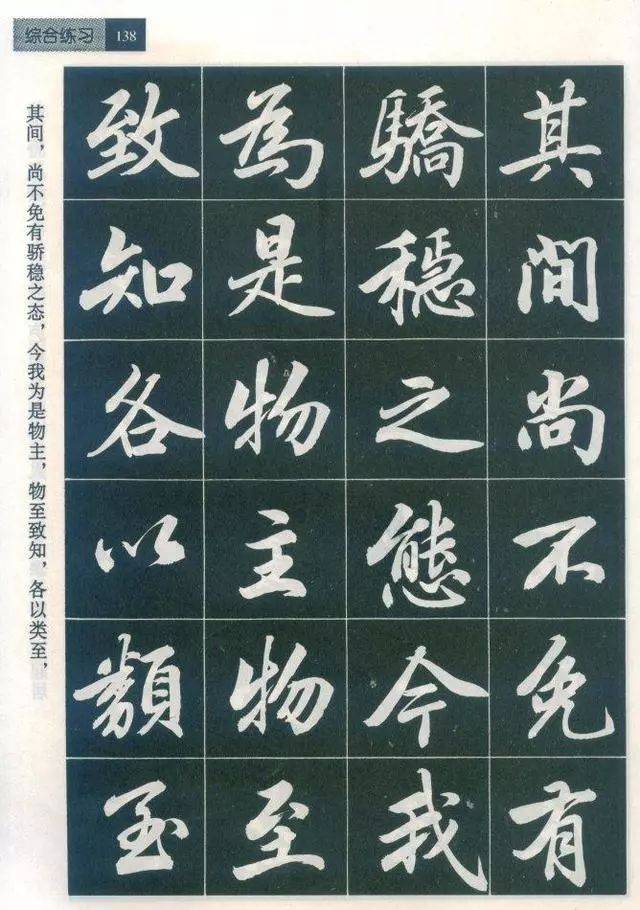 综合练习 138
其間尚不免有
驕穩之態今我
為是物主物至
致知各以類至
其间，尚不免有骄稳之态，今我为是物主，物至致知，各以类至，